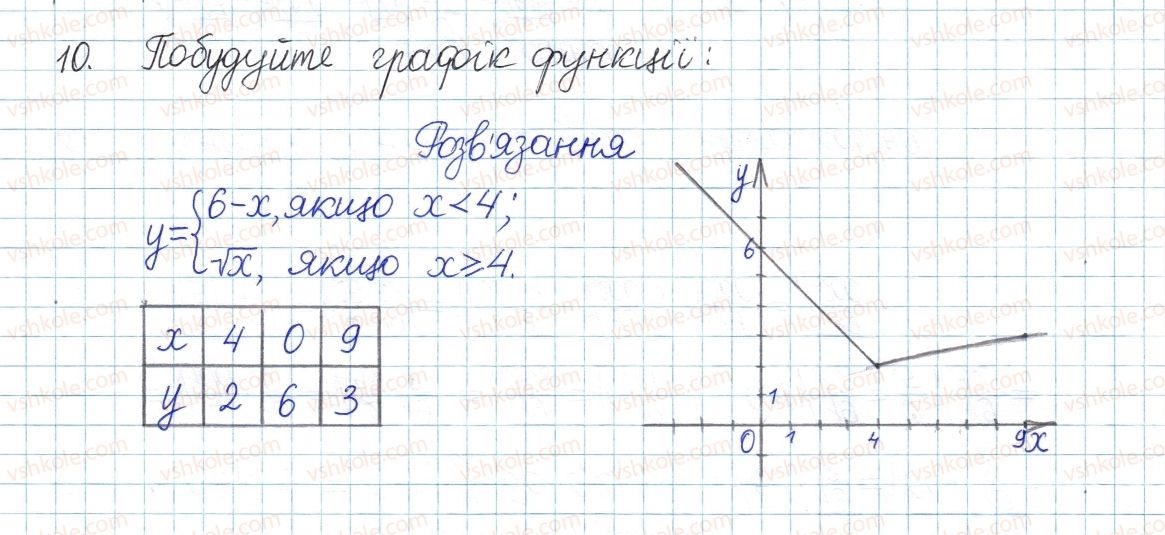 10. Побудуйте графік функції:
Розв'язання
y = { 6-x, якщо x<4;
√x, якщо x≥4.
x 4 0 9
y 2 6 3
y
6
1
0 1 4 9 x
vshkole.com